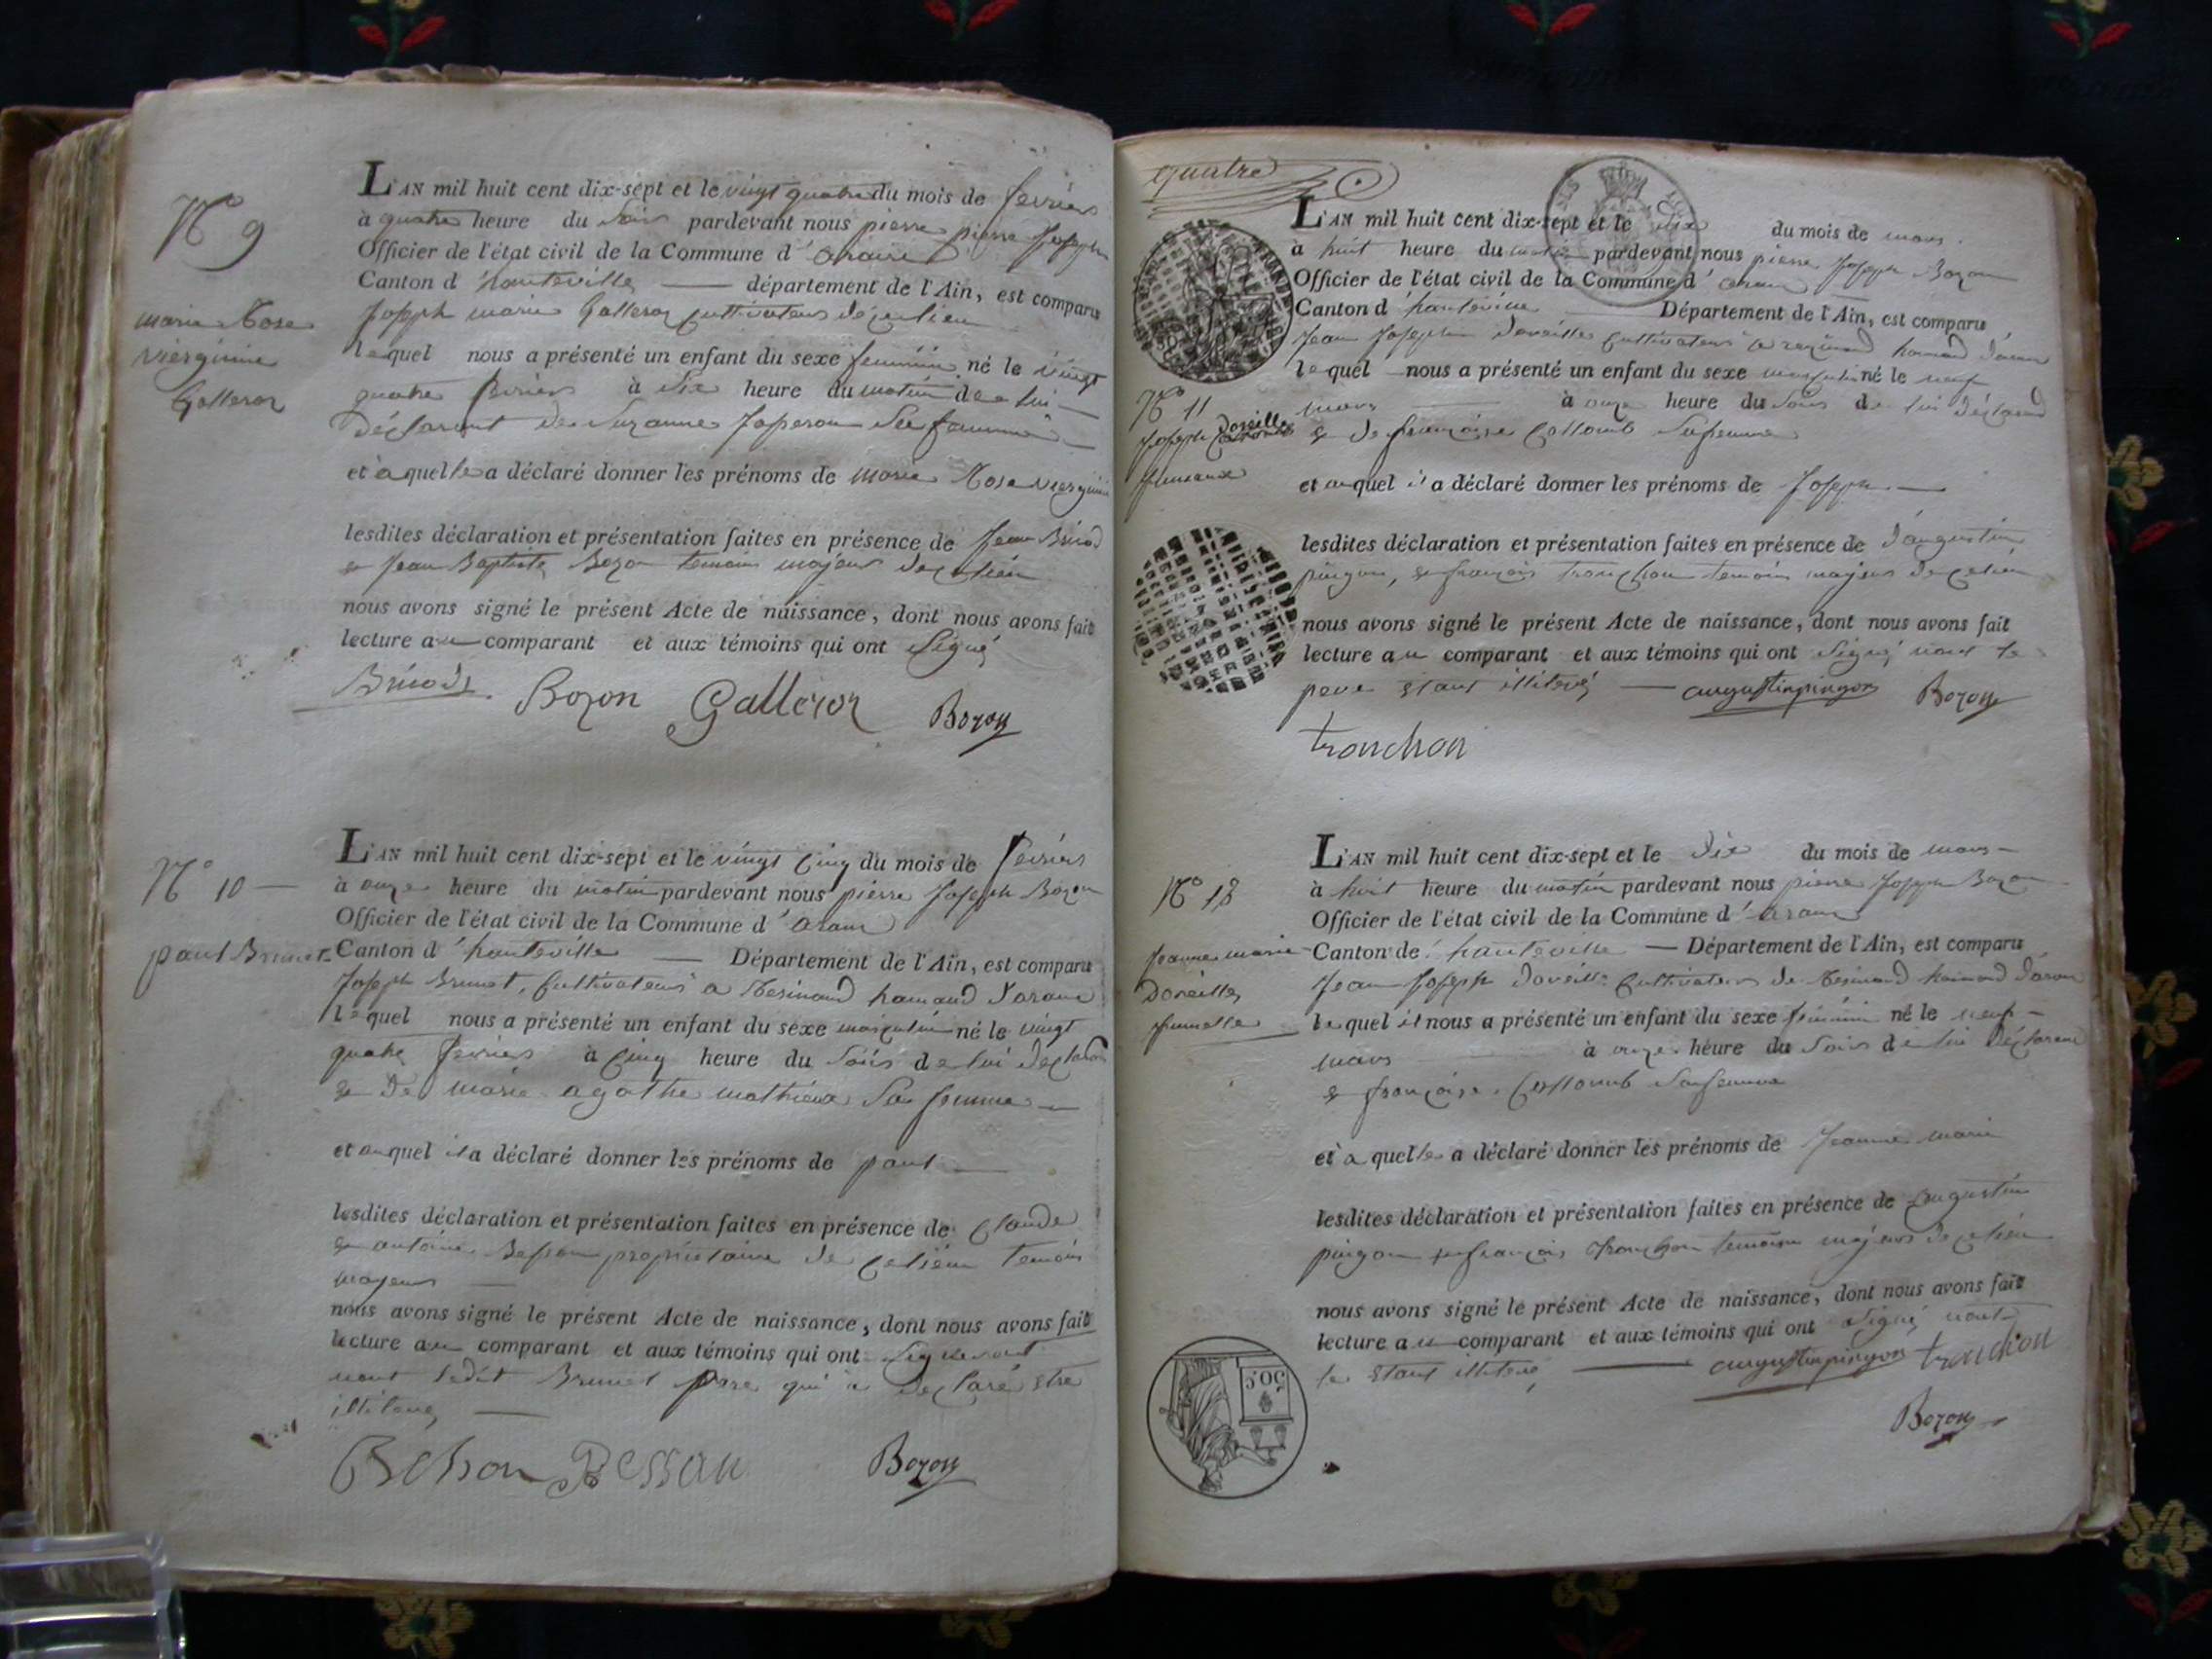 N° 9
marie Rose
vierginie
Galleron
L'AN mil huit cent dix-sept et le vingt quatre du mois de fevrier
à quatre heure du soir pardevant nous pierre pierre Joseph
Officier de l'état civil de la Commune d'arane
Canton d'hauteville département de l'Ain, est comparu
Joseph marie Galleron cultivateur de ce lieu
lequel nous a présenté un enfant du sexe feminin né le vingt
quatre fevrier à dix heure du matin de lui
déclarant de Suzanne Japeron sa femme
et à quelle a déclaré donner les prénoms de marie Rose vierginie
lesdites déclaration et présentation faites en présence de Jean Brinod
et Jean Baptiste Bozon temoins majeurs de ce lieu
nous avons signé le présent Acte de naissance, dont nous avons fait
lecture au comparant et aux témoins qui ont signé
Bozon Galleron Bozon
N° 10
paul Brunet
L'AN mil huit cent dix-sept et le vingt cinq du mois de fevrier
à onze heure du matin pardevant nous pierre Joseph Bozon
Officier de l'état civil de la Commune d'arane
Canton d'hauteville Département de l'Ain, est comparu
Joseph Brunet, cultivateur a Resinand hamaud d'arane
lequel nous a présenté un enfant du sexe masculin né le vingt
quatre fevrier à cinq heure du soir de lui declarant
et de marie agathe mathieux sa femme
et auquel il a déclaré donner les prénoms de paul
lesdites déclaration et présentation faites en présence de Claude
et antoine Besson proprietaire de ce lieu temoins
majeurs
nous avons signé le présent Acte de naissance, dont nous avons fait
lecture au comparant et aux témoins qui ont
nont ledit Brunet pere qui a declaré etre
Besson Bozon
quatre
N° 11
Joseph Doreille
jumeaux
L'AN mil huit cent dix-sept et le dix du mois de mars
à huit heure du matin pardevant nous pierre Joseph Bozon
Officier de l'état civil de la Commune d'arane
Canton d'hauteville Département de l'Ain, est comparu
Jean Joseph Doreille cultivateur a resinand hamaud d'arane
lequel nous a présenté un enfant du sexe masculin né le neuf
mars à onze heure du soir de lui déclarant
et de françoise Collomb sa femme
et auquel il a déclaré donner les prénoms de Joseph
lesdites déclaration et présentation faites en présence de d'augustin
pingon, et françois tronchon temoins majeurs de ce lieu
nous avons signé le présent Acte de naissance, dont nous avons fait
lecture au comparant et aux témoins qui ont signé nont le
pere etant illiteré augustin pingon Bozon
tronchon
N° 12
Jeanne marie
Doreille
jumelle
L'AN mil huit cent dix-sept et le dix du mois de mars
à huit heure du matin pardevant nous pierre Joseph Bozon
Officier de l'état civil de la Commune d'arane
Canton de hauteville Département de l'Ain, est comparu
Jean Joseph Doreille cultivateur de Resinand hamaud d'arane
lequel il nous a présenté un enfant du sexe féminin né le neuf
mars à onze heure du soir de lui déclarant
et françoise Collomb sa femme
et à quelle a déclaré donner les prénoms de Jeanne marie
lesdites déclaration et présentation faites en présence de augustin
pingon et françois tronchon temoins majeurs de ce lieu
nous avons signé le présent Acte de naissance, dont nous avons fait
lecture au comparant et aux témoins qui ont signé nont
le etant illiteré augustin pingon tronchon
Bozon
50 C.